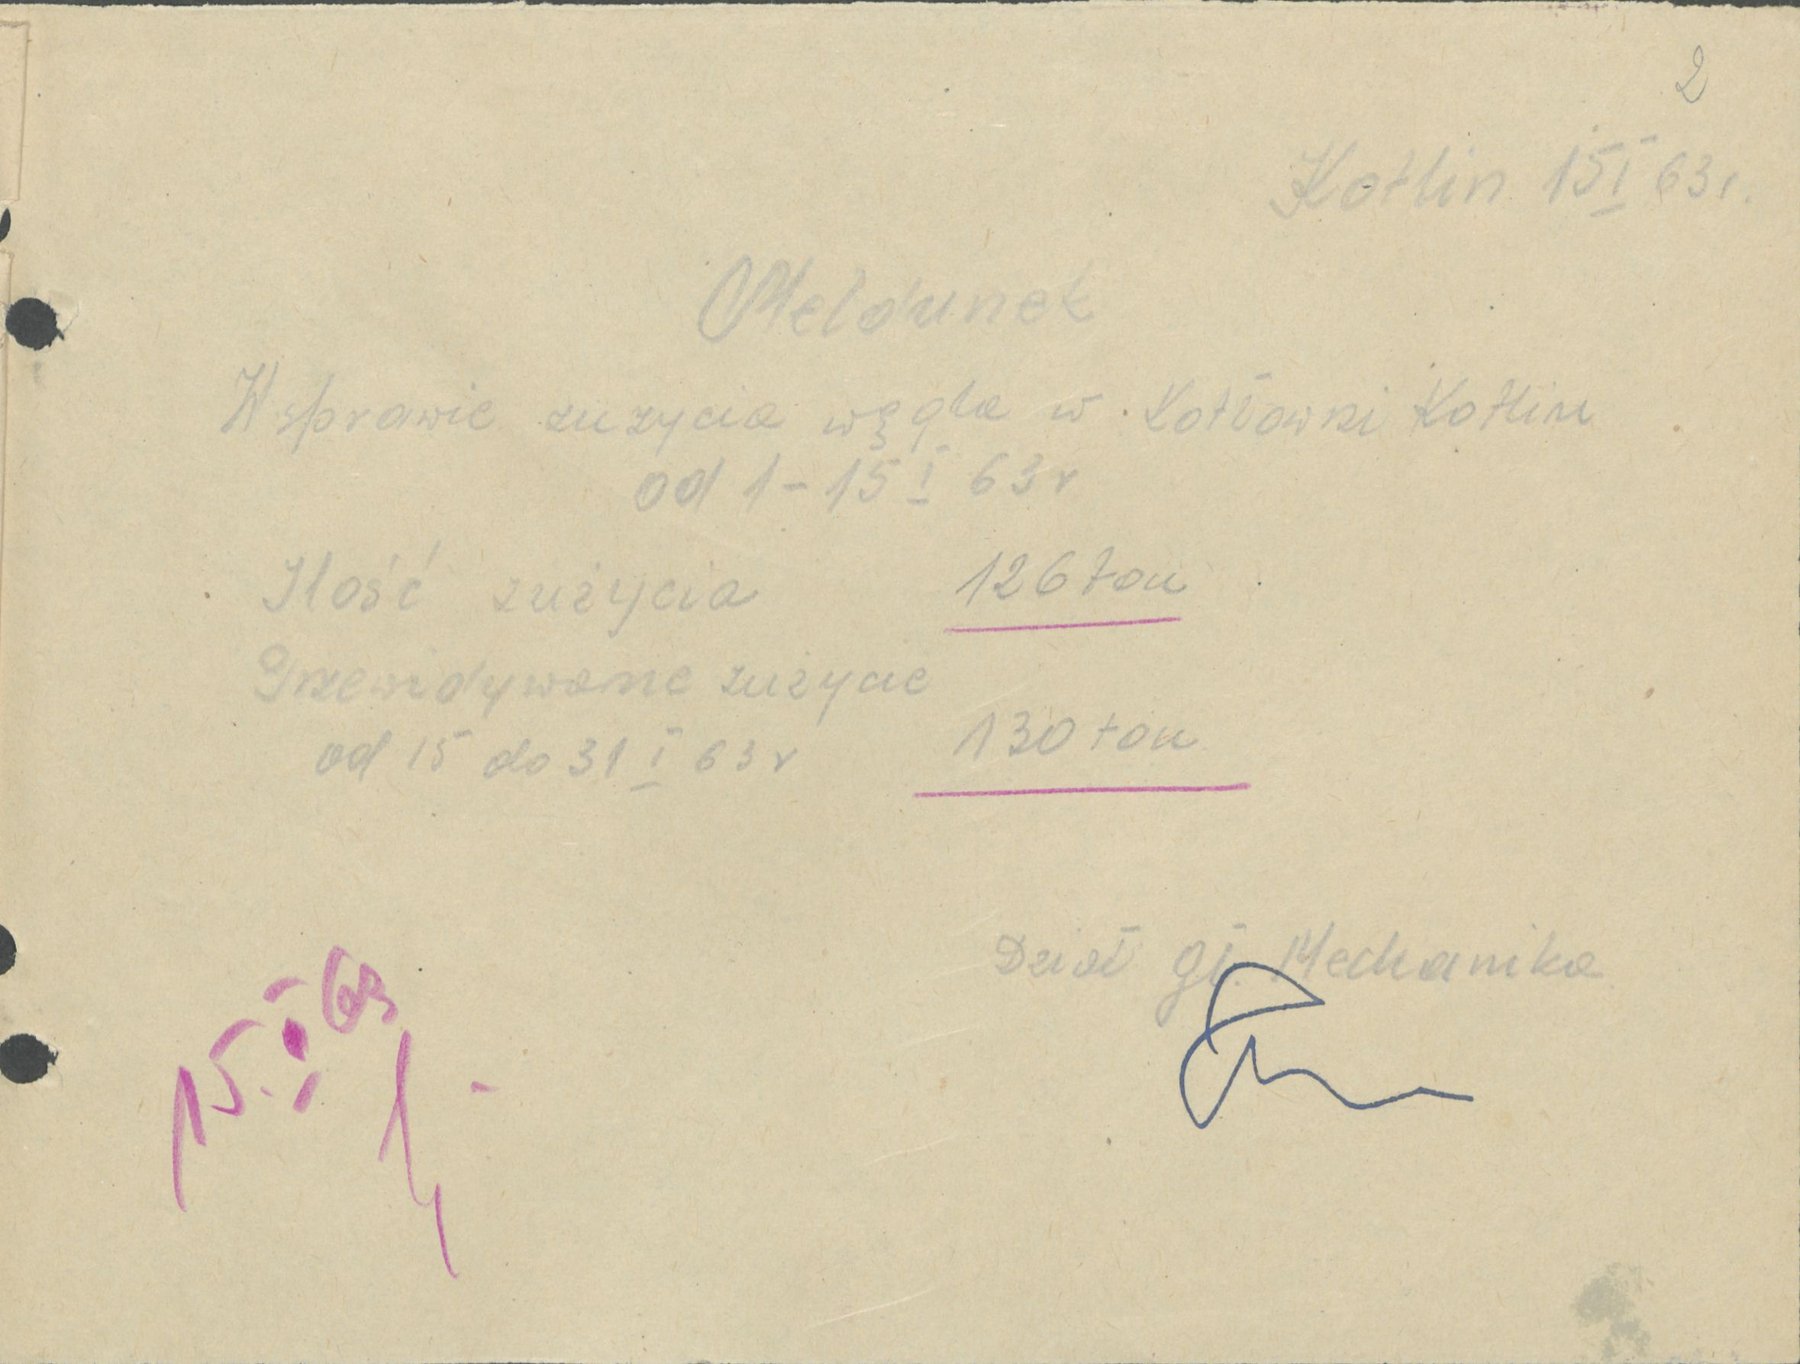 2
Kotlin 15 I 63 r.
Meldunek
W sprawie zużycia węgla w Kotłowni Kotlin
od 1 - 15 I 63 r
Ilość zużycia 126 ton
Przewidywane zużycie
od 15 do 31 I 63 r 130 ton
Dział gł. Mechanika
15. I 63